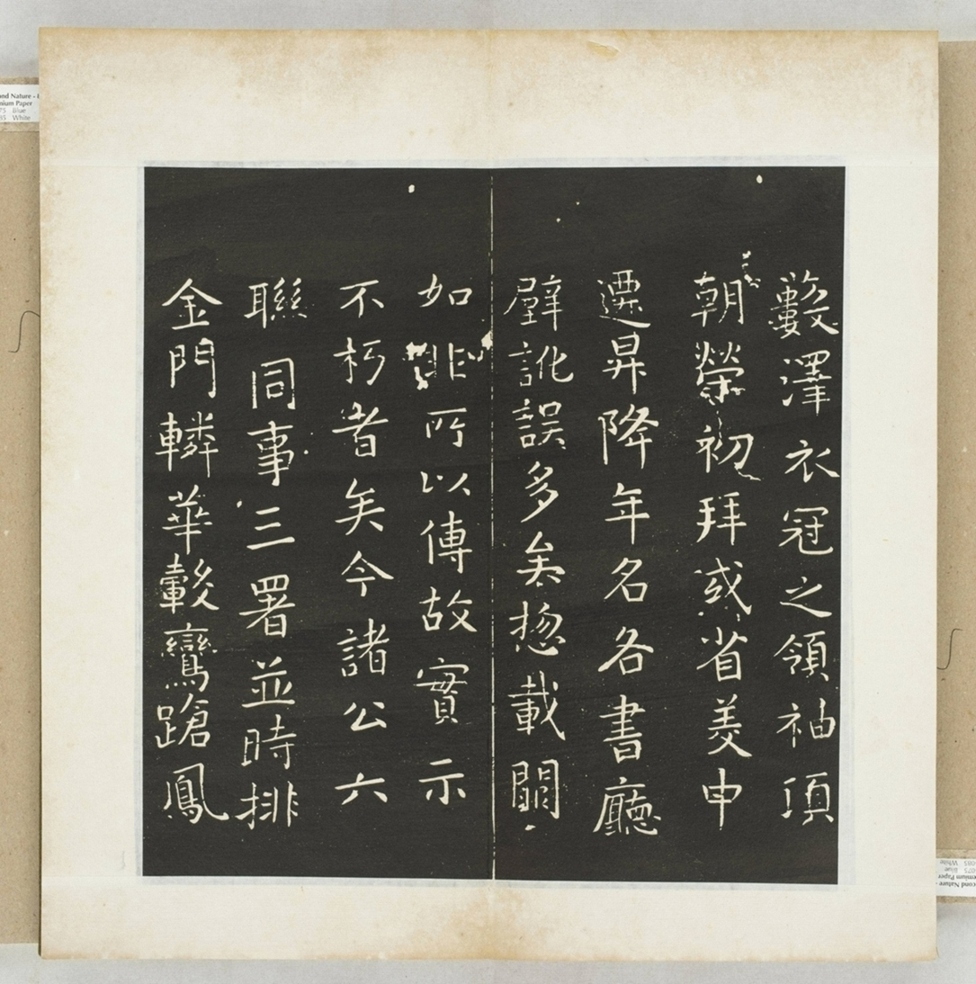 藪澤衣冠之領袖頃
朝榮初拜或省美申
遷昇降年名各書廳
壁訛誤多矣惣載闕
如非所以傳故實示
不朽者矣今諸公六
聯同事三署並時排
金門轔華轂鸞蹌鳳
Nature -
Paper
Blue
White
Nature -
Paper
Blue
White